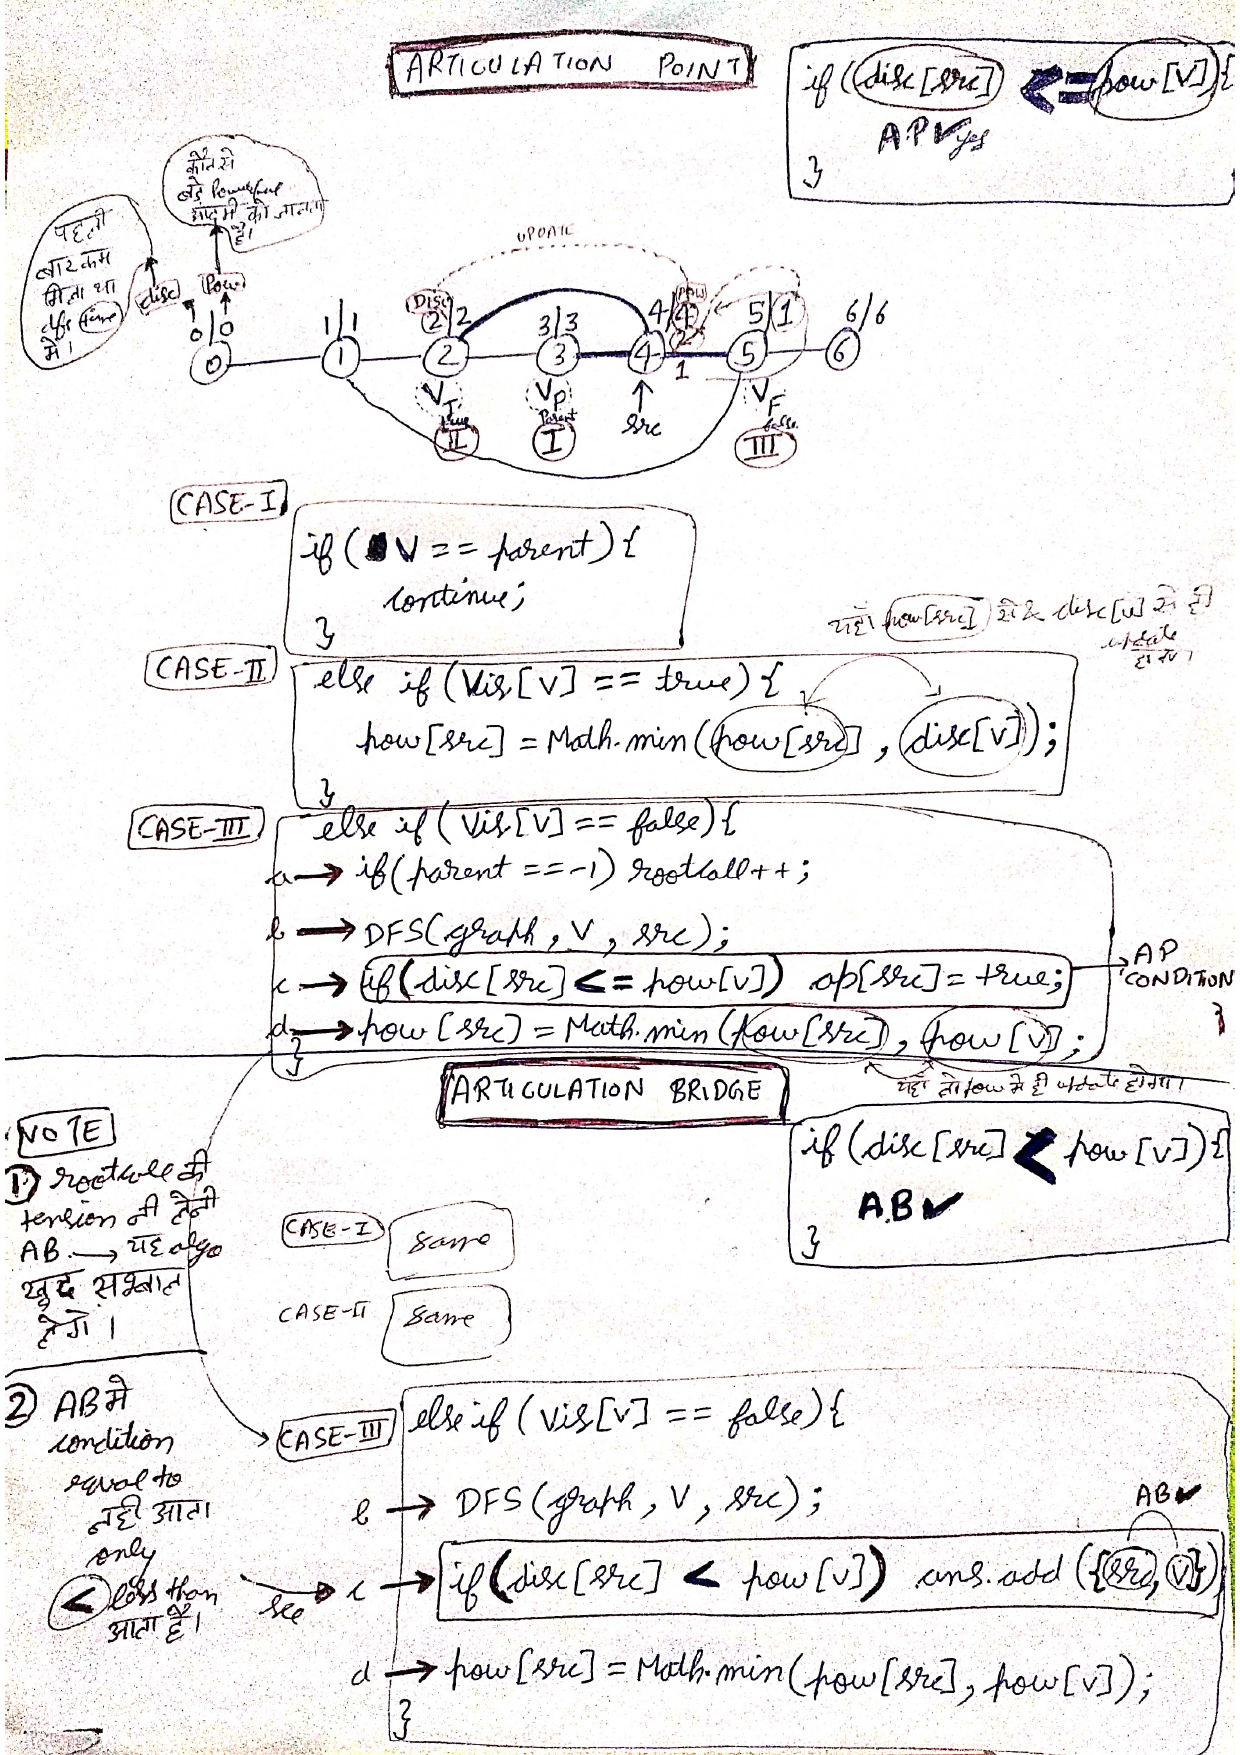 ARTICULATION POINT
if (disc[src] <= pow[v]){
A.P ✔ yes
}
कौन से
बड़े Powerful
आदमी को जानता
है।
पहली
बार कब
मिला था
dfs time
मे।
disc
Pow
UPDATE
0/0 1/1 DISC 2/2 3/3 4/4 POW 2 1 5/1 6/6
0 1 2 3 4 5 6
V T true II
V P Parent I
src
V F false III
CASE-I
if ( V == parent) {
continue;
}
यहाँ pow[src] disc[v] से ही
update
होगा।
CASE-II
else if (Vis[v] == true) {
pow[src] = Math.min(pow[src], disc[v]);
}
CASE-III
else if (Vis[v] == false){
a → if(parent == -1) rootcall++;
b → DFS(graph, V, src);
c → if(disc[src] <= pow[v]) ap[src] = true; → AP
CONDITION
}
d → pow[src] = Math.min(pow[src], pow[v]);
}
यहाँ तो pow से ही update होगा।
ARTICULATION BRIDGE
if (disc[src] < pow[v]){
A.B ✔
}
NOTE
1) rootcall की
tension नी लेनी
AB. → यह algo
खुद सम्भाल
लेगे।
CASE-I same
CASE-II same
2) AB मे
condition
equal to
नही आता
only
< less than
आता है।
see
CASE-III
else if (Vis[v] == false){
b → DFS(graph, V, src);
AB ✔
c → if(disc[src] < pow[v]) ans.add({src, v})
d → pow[src] = Math.min(pow[src], pow[v]);
}